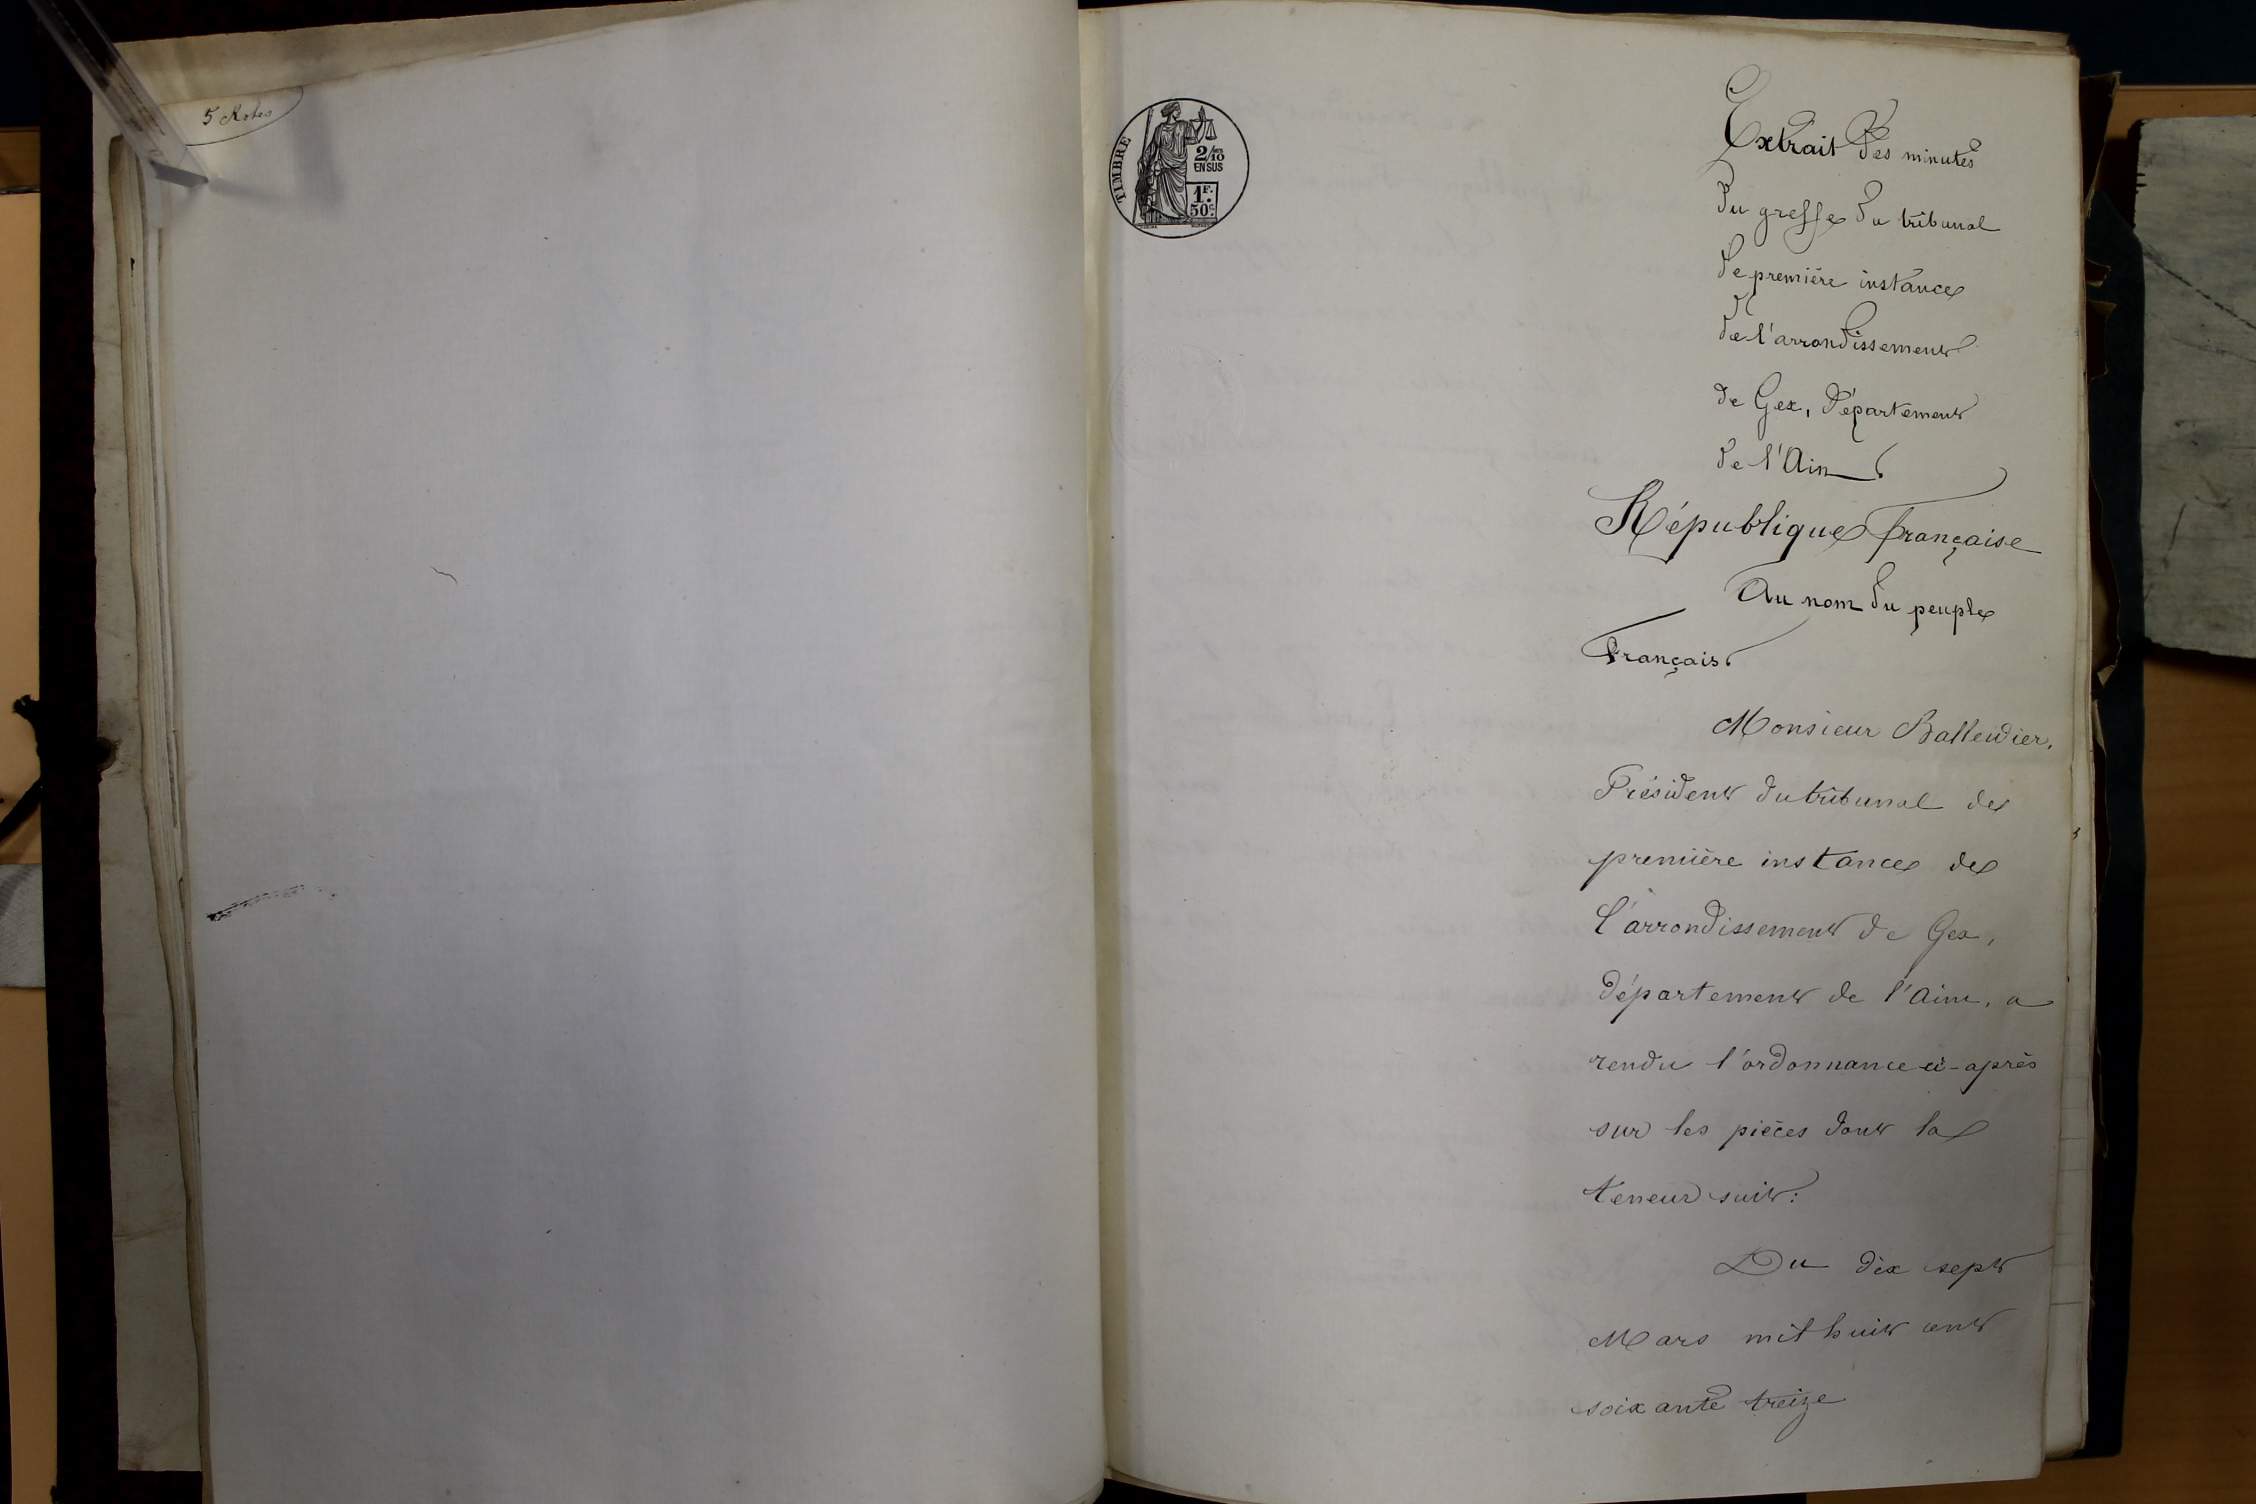 5 Roles
TIMBRE
2/10
EN SUS
1F.
50c.
Extrait des minutes
du greffe du tribunal
de première instance
de l'arrondissement
de Gex, Département
de l'Ain
République française
Au nom du peuple
français
Monsieur Balleidier,
Président du tribunal de
première instance de
l'arrondissement de Gex,
département de l'Ain, a
rendu l'ordonnance ci-après
sur les pièces dont la
teneur suit:
Du dix sept
Mars mil huit cent
soixante treize